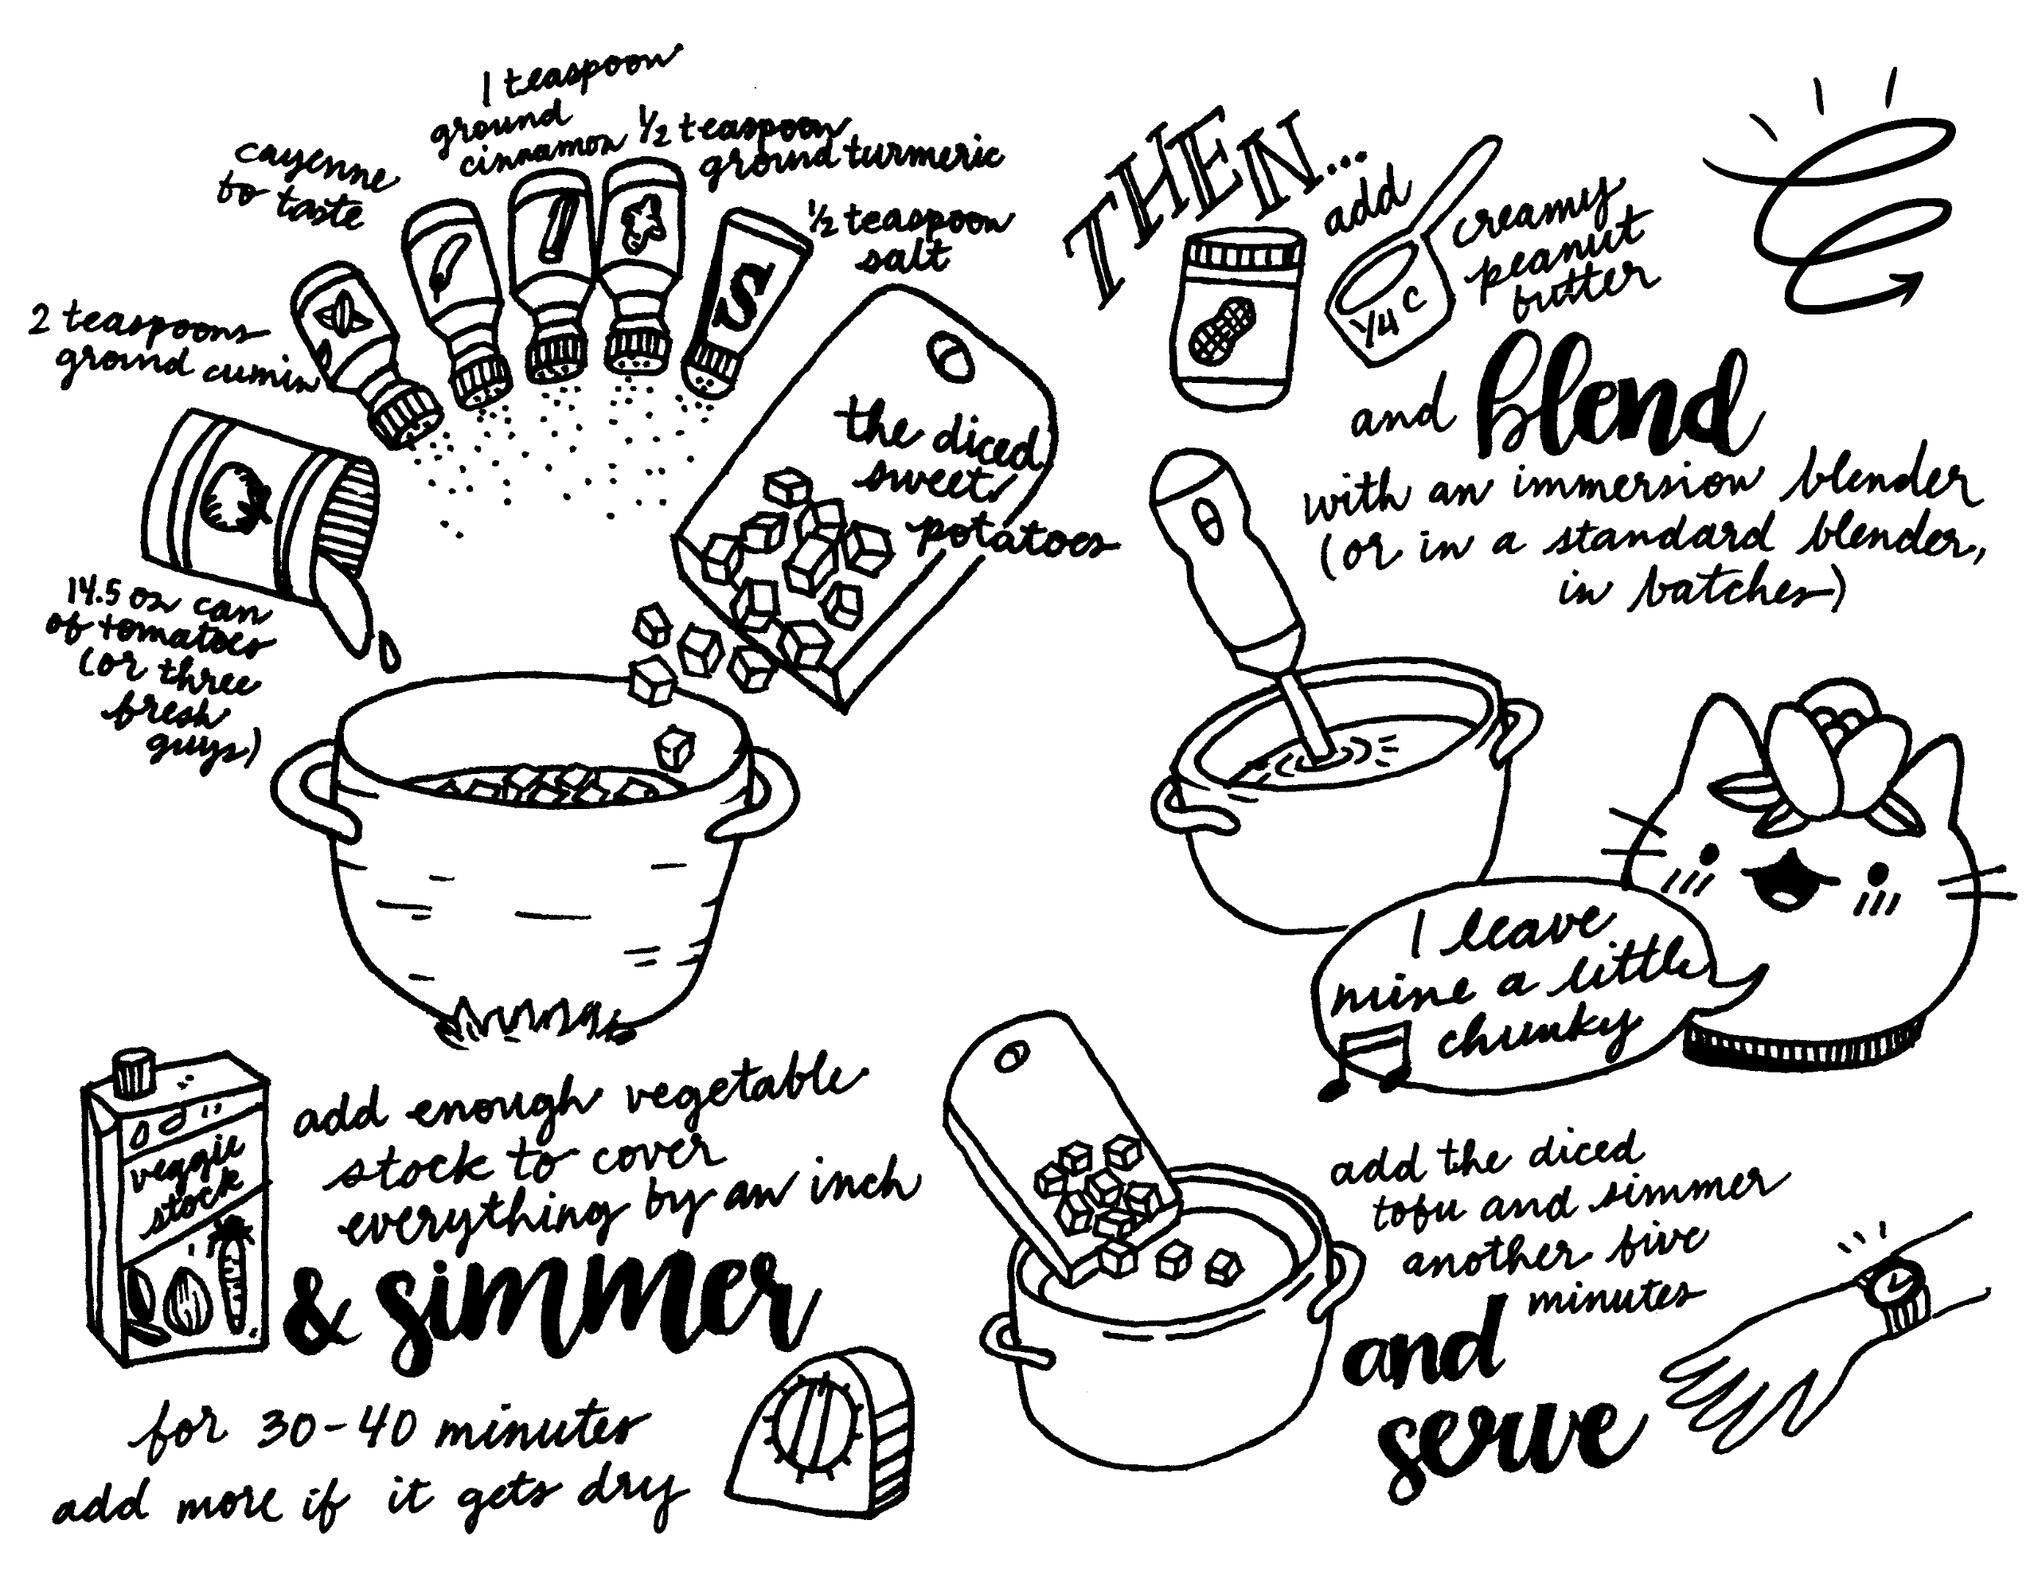 1 teaspoon
ground
cinnamon
1/2 teaspoon
ground turmeric
cayenne
to taste
1/2 teaspoon
salt
S
2 teaspoons
ground cumin
the diced
sweet
potatoes
14.5 oz can
of tomatoes
(or three
fresh
guys)
veggie
stock
add enough vegetable
stock to cover
everything by an inch
& simmer
for 30-40 minutes
add more if it gets dry
THEN...
add
1/4 C
creamy
peanut
butter
and blend
with an immersion blender
(or in a standard blender,
in batches)
I leave
mine a little
chunky
add the diced
tofu and simmer
another five
minutes
and
serve